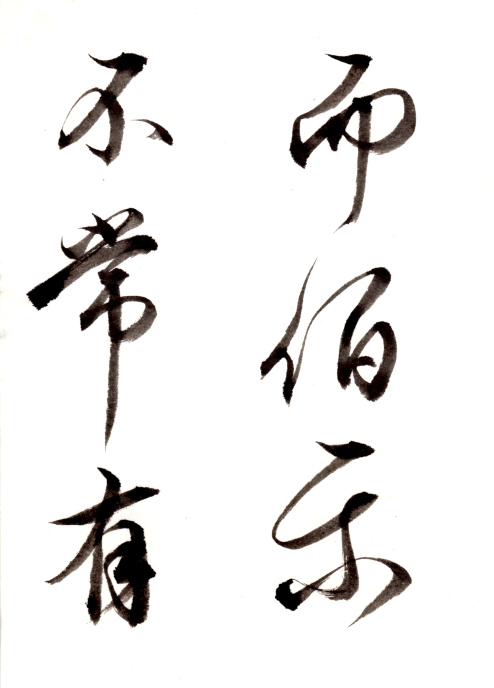 而伯乐
不常有